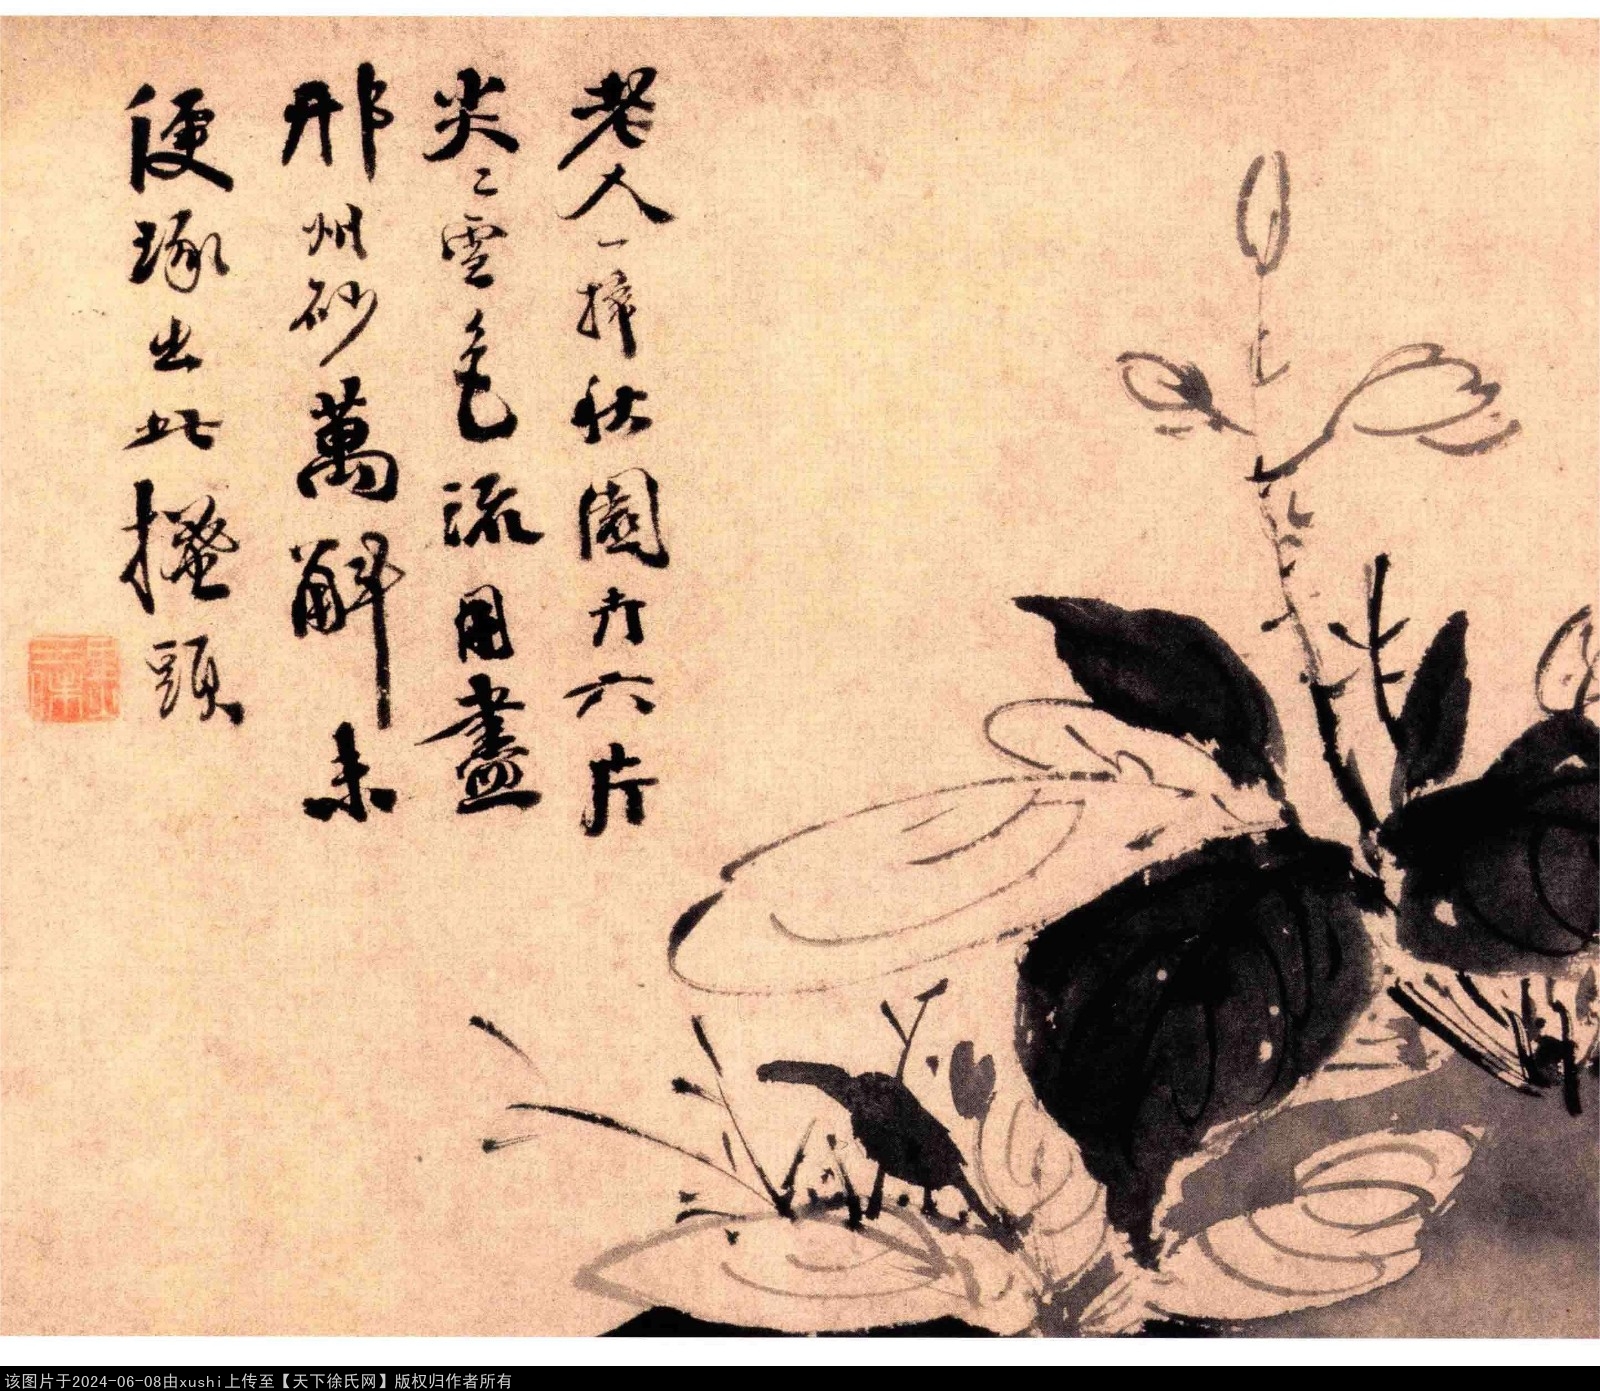 老人一掃秋園卉六片
尖〻雪色流用盡
邢州砂萬斛未
便琢出此搔頭
该图片于2024-06-08由xushi上传至【天下徐氏网】版权归作者所有